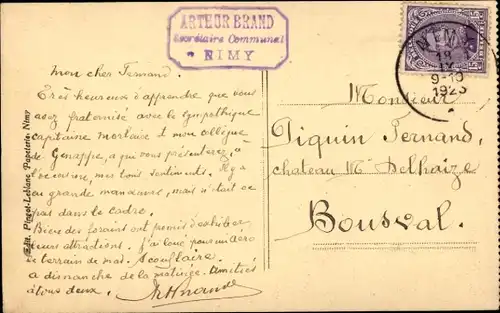 ARTHUR BRAND
Secrétaire Communal
NIMY
NIMY
9-10
1923
Mon cher Fernand.
Très heureux d'apprendre que vous
avez fraternisé avec le sympathique
capitaine et mon collègue
de Genappe, à qui vous présenterez, à
l'occasion, mes bons sentiments. Il y a
eu grande manœuvre, mais n'était ce
pas dans le cadre.
Bien des forains ont permis d'exhiber
leurs attractions. J'ai loué pour
le terrain de mad.
à dimanche de la matinée. Amitiés
à tous deux.
Monsieur
Piquin Fernand,
chateau Mr Delhaize
Bousval.
Edit. Pinget-Leblanc, Papeterie, Nimy